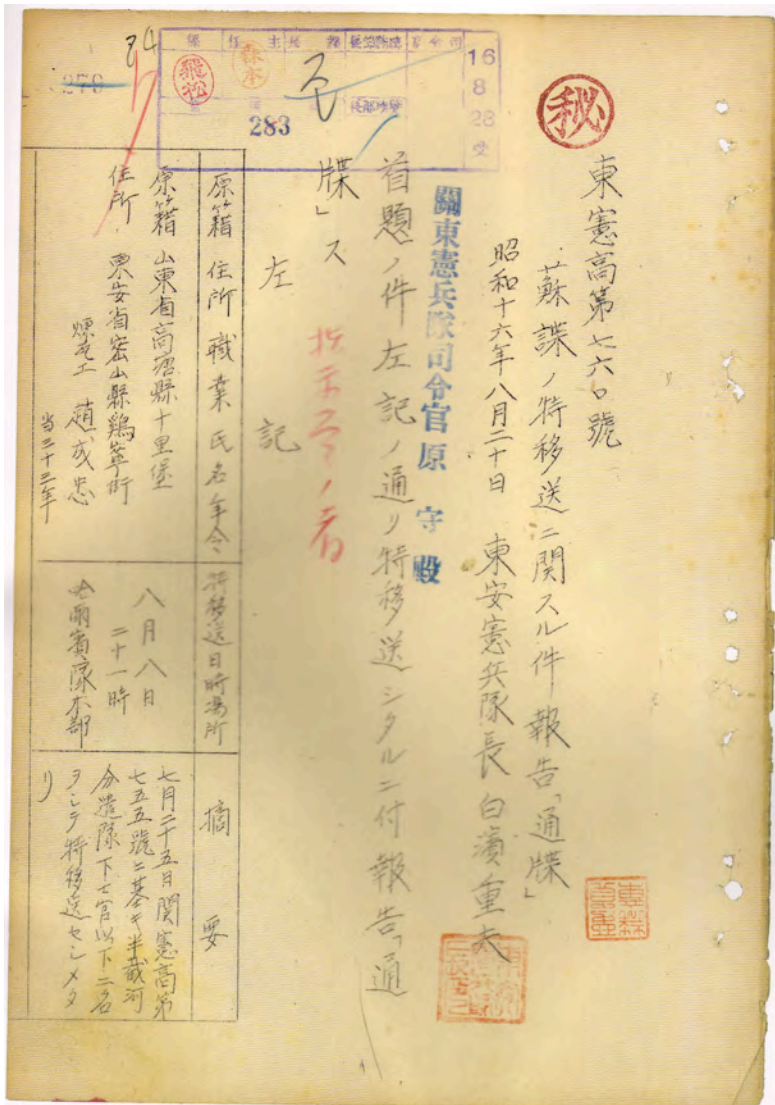 秘
東憲高第七六〇號
蘇諜ノ特移送ニ関スル件報告「通牒」
昭和十六年八月二十日 東安憲兵隊長 白濱重夫
關東憲兵隊司令官 原 守 殿
首題ノ件左記ノ通リ特移送シタルニ付報告「通
牒」ス
左 記
原籍 住所 職業 氏名 年令
特移送日時場所
摘 要
原籍 山東省高唐縣十里堡
住所 東安省密山縣鶏寧街
趙成忠
当三十三年
八月八日
二十一時
哈爾賓隊本部
七月二十五日関憲高第
七五五號ニ基キ半截河
分遣隊下士官以下二名
ヲシテ特移送セシメタ
リ
16
8
28
受
283
飛松
森本
主任